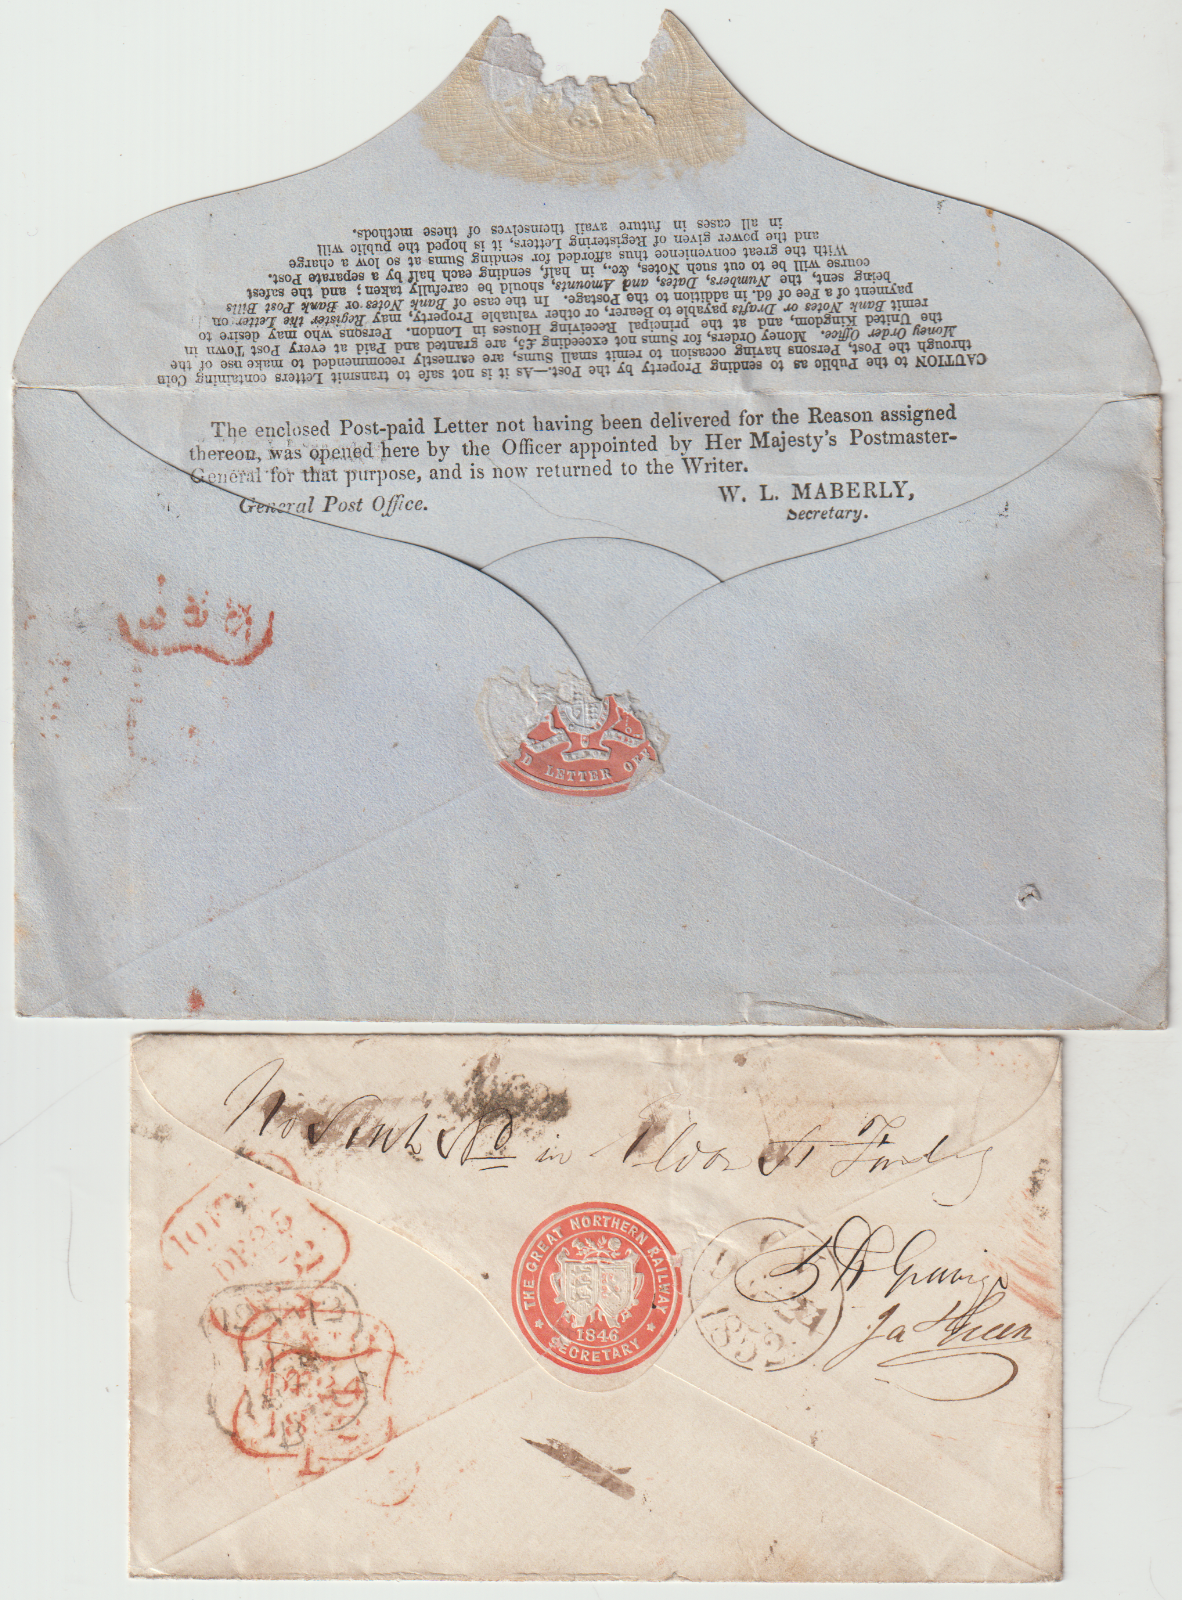 CAUTION to the Public as to sending Property by the Post.—As it is not safe to transmit Letters containing Coin
through the Post, Persons having occasion to remit small Sums, are earnestly recommended to make use of the
Money Order Office. Money Orders, for Sums not exceeding £5, are granted and Paid at every Post Town in
the United Kingdom, and at the principal Receiving Houses in London. Persons who may desire to
remit Bank Notes or Drafts payable to Bearer, or other valuable Property, may Register the Letter on
payment of a Fee of 6d. in addition to the Postage. In the case of Bank Notes or Bank Post Bills
being sent, the Numbers, Dates, and Amounts, should be carefully taken; and the safest
course will be to cut such Notes, &c., in half, sending each half by a separate Post.
With the great convenience thus afforded for sending Sums at so low a charge
and the power given of Registering Letters, it is hoped the public will
in all cases in future avail themselves of these methods.
The enclosed Post-paid Letter not having been delivered for the Reason assigned
thereon, was opened here by the Officer appointed by Her Majesty's Postmaster-
General for that purpose, and is now returned to the Writer.
General Post Office.
W. L. MABERLY,
Secretary.
D LETTER OFF
No Such No in St
THE GREAT NORTHERN RAILWAY
1846
SECRETARY
1852